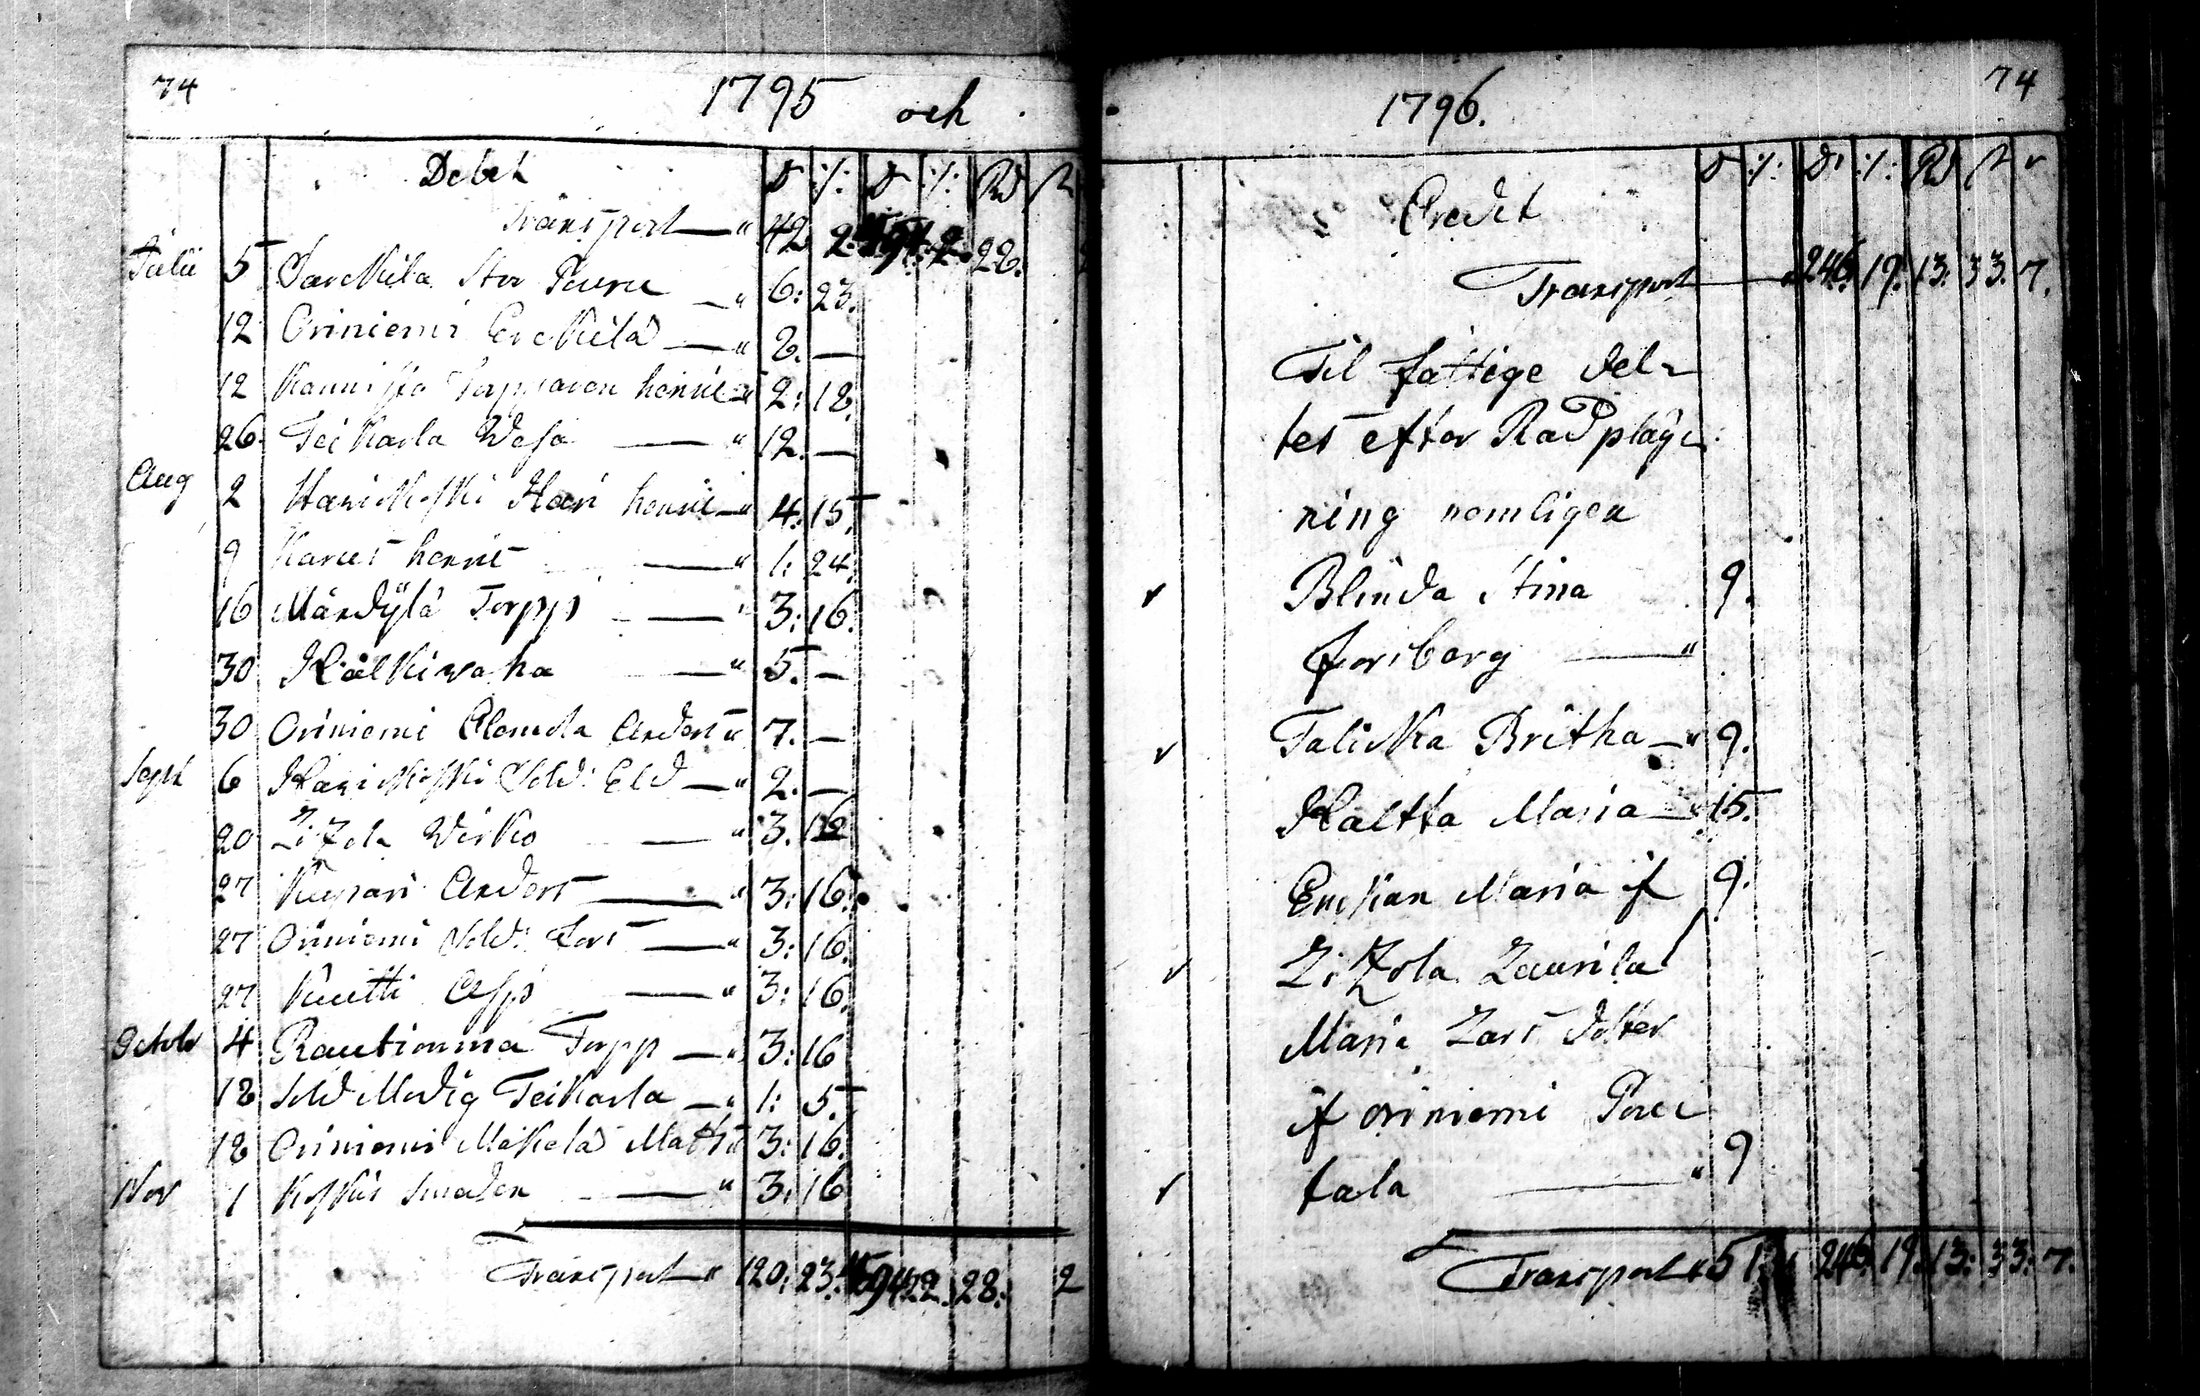 74
1795 och
Debet
Transport — " 42 2. 22.
Julii 5 Sarckila Stor Pavru — " 6: 23.
12 Oriniemi Erckilä — " 2. —
12 Kannisto Torpparen hennes " 2: 18.
26. Teikarla Wesa — " 12. —
Aug 2 Harickoski Hari hennes — " 4: 15.
9 Karus hennes — " 1: 24.
16 Mändylä Torpp — " 3: 16.
30 Kälkiwaha — " 5. —
30 Oriniemi Alamola Anders " 7. —
Sept 6 Harickoski Sold: Eld — " 2. —
20 LiZola Wirko — " 3. 12
27 Kupari Anders — " 3: 16.
27 Oriniemi Sold: Fors — " 3: 16.
27 Knutti — " 3: 16.
Octobr 4 Rautionma Torpp — " 3: 16
18 Sold Modig Teikarla — " 1: 5.
18 Oriniemi Mickelä Matts " 3: 16.
Nov 1 Koskis Smeden — " 3: 16
Transport — " 120: 23. 28: 2
1796.
74
Credit
Transport — 246. 19. 13: 33. 7.
Til fattige del-
tes efter Rådpläg-
ning nemligen
Blinda Stina 9.
Forsberg — "
Talicka Britha — " 9.
Kaltta Maria — " 15.
Enckan Maria if 9.
LiZola Laurila
Maria Lars dotter
if oriniemi Pacu
tala — " 9
Transport " 51: 246. 19. 13: 33: 7.